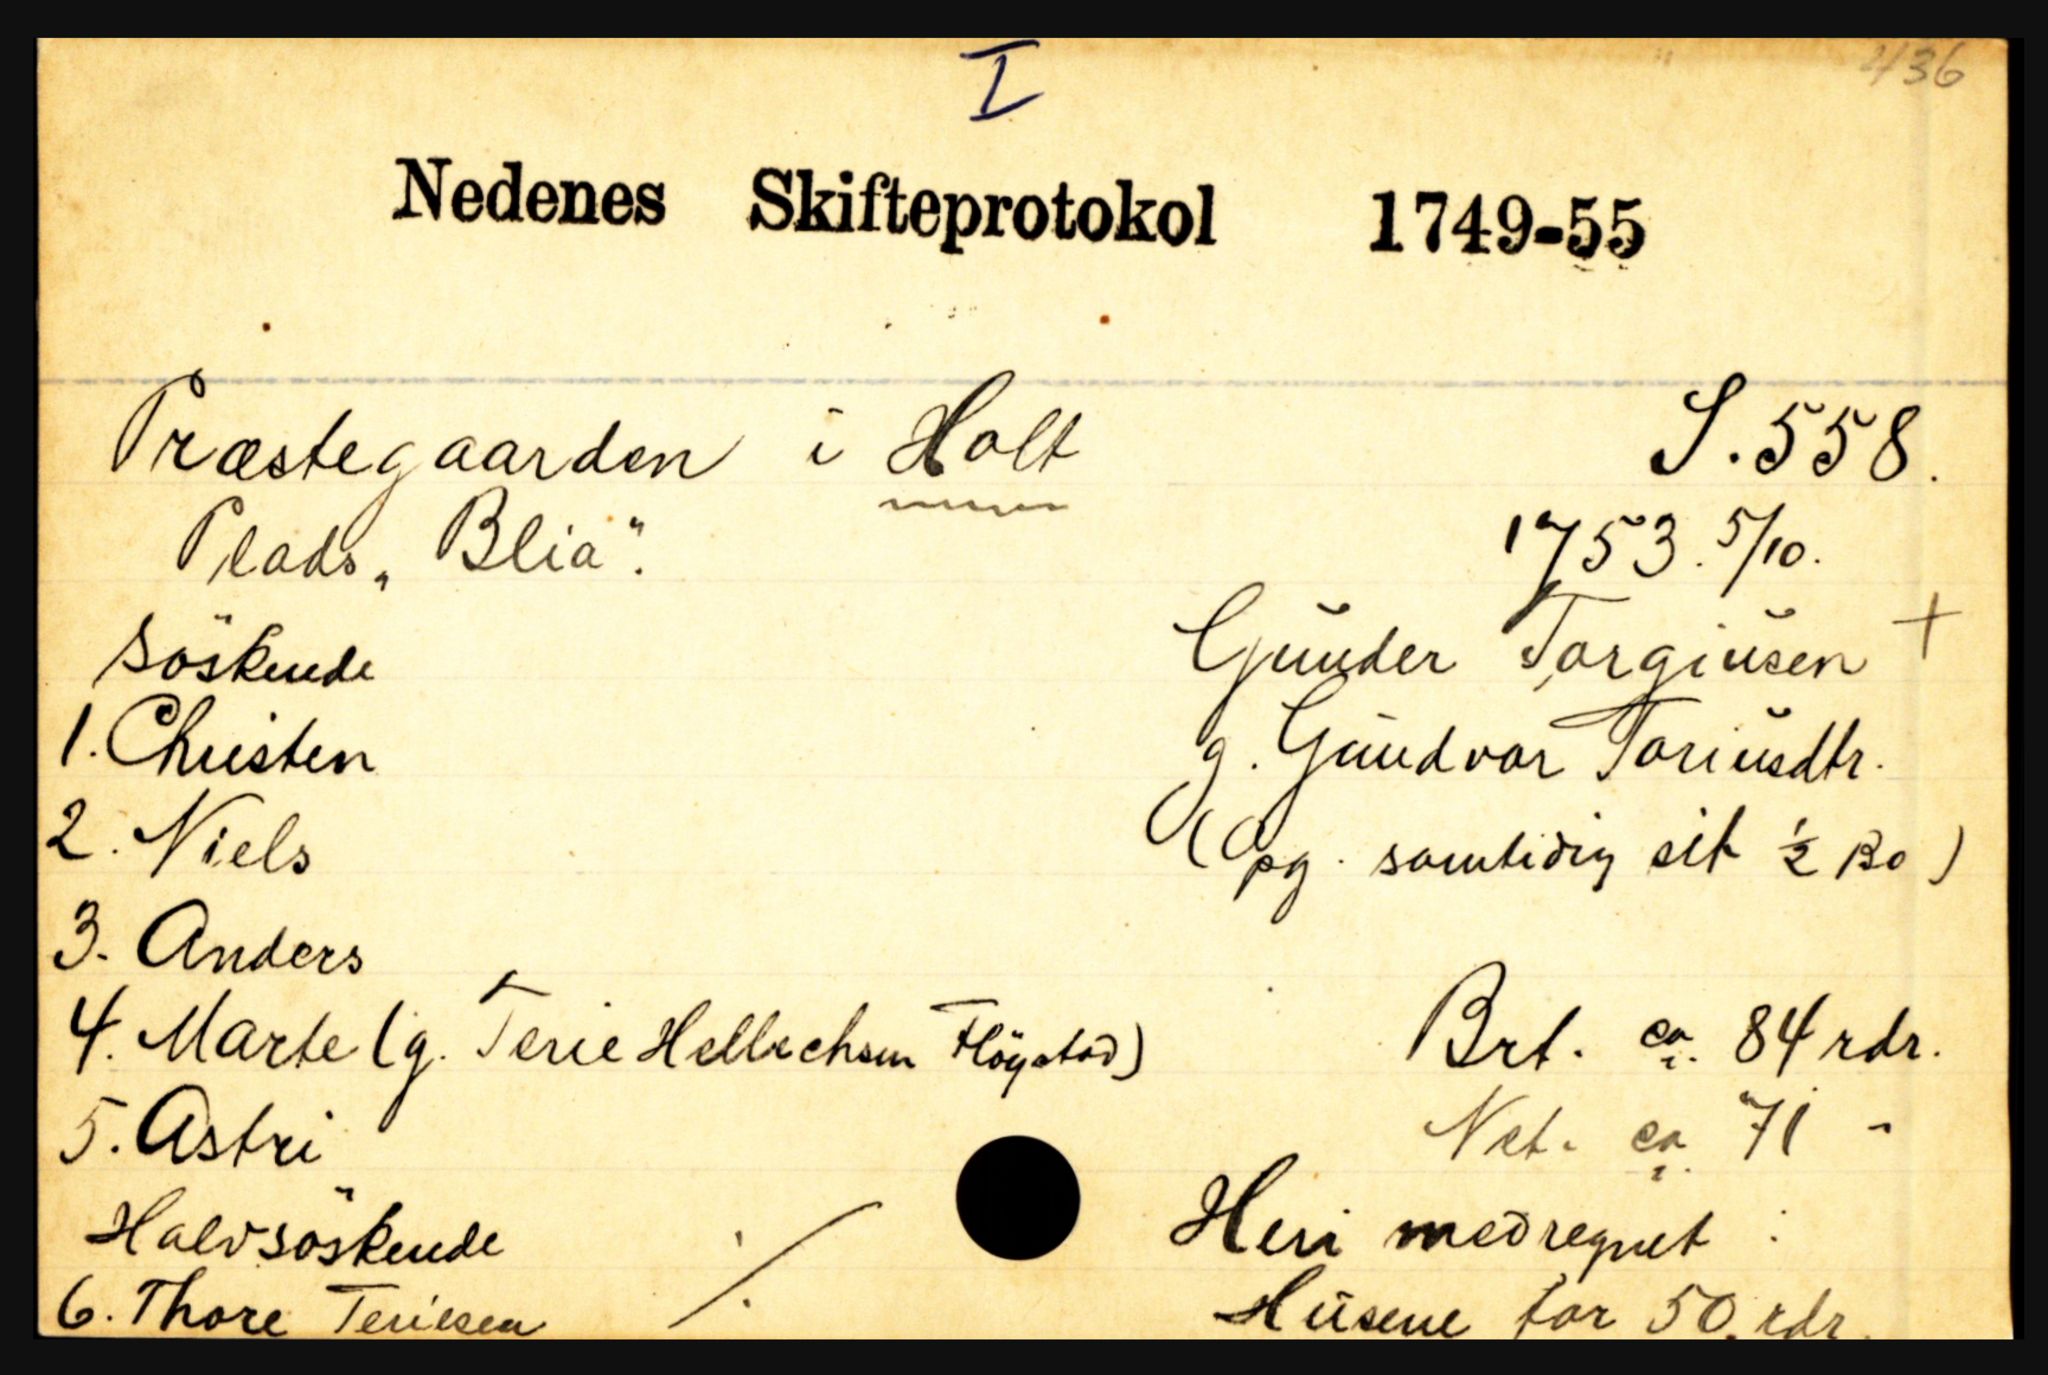 436
I
Nedenes Skifteprotokol 1749-55
Præstegaarden i Holt S. 558.
Plads „Blia". 1753. 5/10.
Söskende Gunder Torgiusen +
1. Christen g. Gundvor Toriusdtr.
2. Niels (Opg. samtidig sit 1/2 Bo)
3. Anders
4. Marte (g. Terie Hellechsen Flögstad) Brt. ca. 84 rdr.
5. Astri Net. ca. 71 -
Halvsöskende Heri medregnet :
6. Thore Teriesen ./. Husene for 50 rdr.